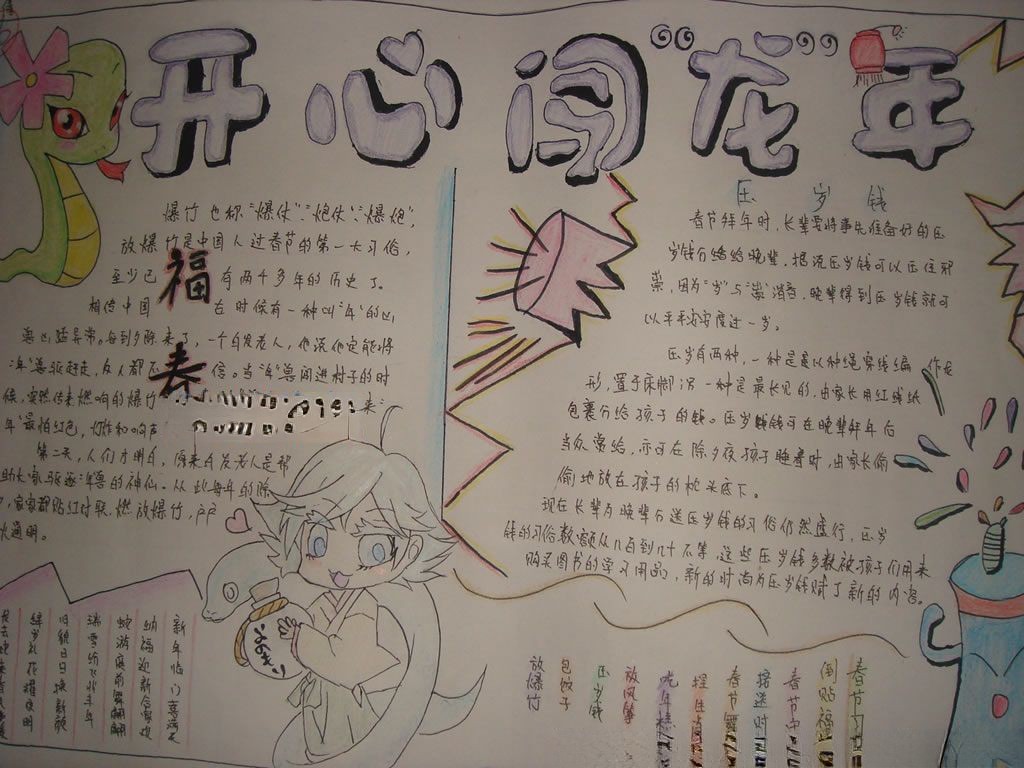 开心闯“龙”年
爆竹也称“爆仗”、“炮仗”、“爆炮”,
放爆竹是中国人过春节的第一大习俗,
至少已有两千多年的历史了。
福
相传中国在时候有一种叫“年”的凶
兽凶猛异常。每到夕除来了,一个白发老人,他说他定能将
“年”兽驱赶走,众人都不信。当“年”兽闯进村子的时
春
候,突然传来燃响的爆竹
“年”最怕红色,火炸和响声
第二天,人们才明白,原来白发老人是帮
助大家驱逐“年”兽的神仙。从此每年的除
夕,家家都贴红对联,燃放爆竹,户户
火通明。
新年临门喜满天
纳福迎新合家欢
蛇游凤舞翩翩
瑞雪纷飞兆丰年
旧貌日日换新颜
压岁钱
春节拜年时,长辈要将事先准备好的压
岁钱分给给晚辈,据说压岁钱可以压住邪
祟,因为“岁”与“祟”谐音,晚辈得到压岁钱就可
以平平安安度过一岁。
压岁有两种,一种是是以种绳穿线编作龙
形,置于床脚;另一种是最长见的,由家长用红线纸
包裹分给孩子的钱。压岁钱钱可在晚辈拜年后
当众赏给,亦可在除夕夜孩子睡着时,由家长偷
偷地放在孩子的枕头底下。
现在长辈为晚辈分送压岁钱的习俗仍然盛行,压岁
钱的习俗数额从几百到几十不等,这些压岁钱多数被孩子们用来
购买图书的学习用品,新的时尚为压岁钱赋了新的内容。
春节习
倒贴福
春节
春节舞
捏生肖
吃年糕
放风筝
压岁钱
包饺子
放爆竹